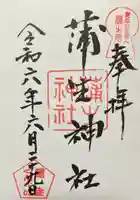 奉拝
蒲生神社
令和六年六月二十九日
蒲生
神社